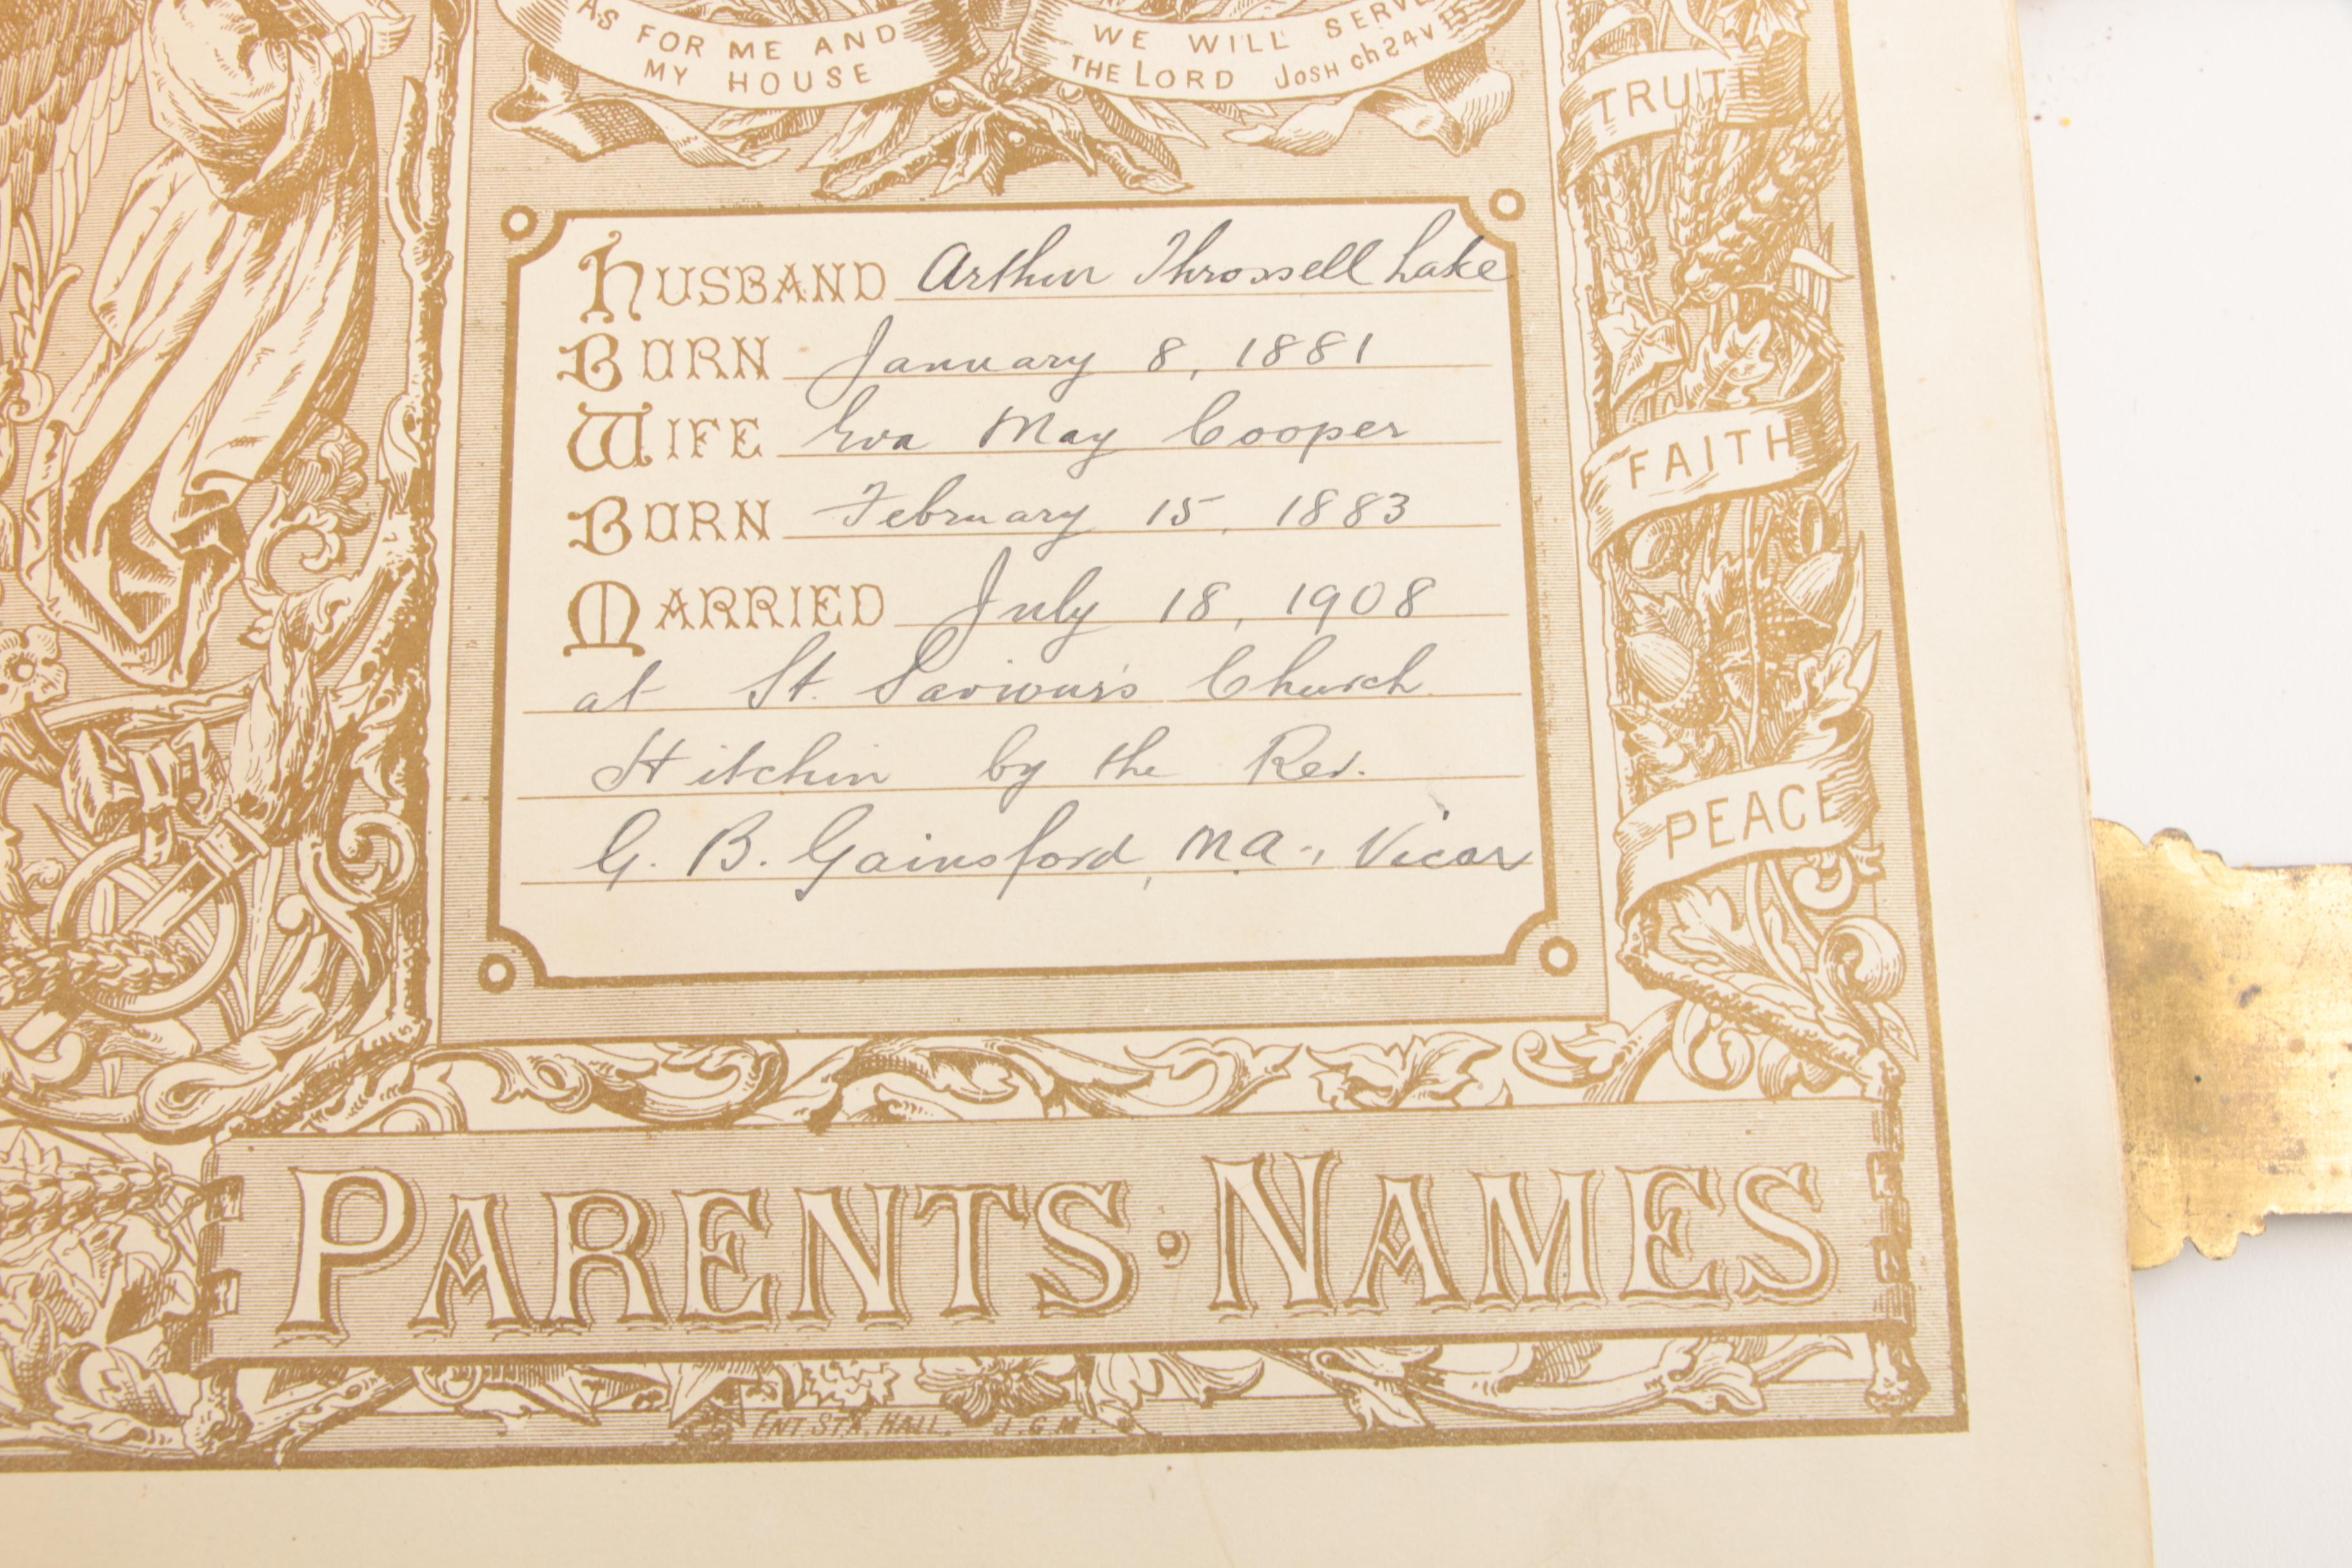 AS FOR ME AND
MY HOUSE
WE WILL SERVE
THE LORD JOSH ch 24 v 15
TRUTH
HUSBAND Arthur Throssell Lake
BORN January 8, 1881
WIFE Eva May Cooper
BORN February 15, 1883
MARRIED July 18, 1908
at St. Saviour's Church
Hitchin by the Rev.
G. B. Gainsford, M.A., Vicar
FAITH
PEACE
PARENTS · NAMES
ENT. STA. HALL. J. G. M.